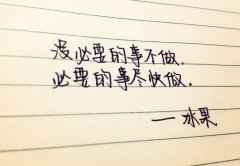 没必要的事不做,
必要的事尽快做.
——冰果